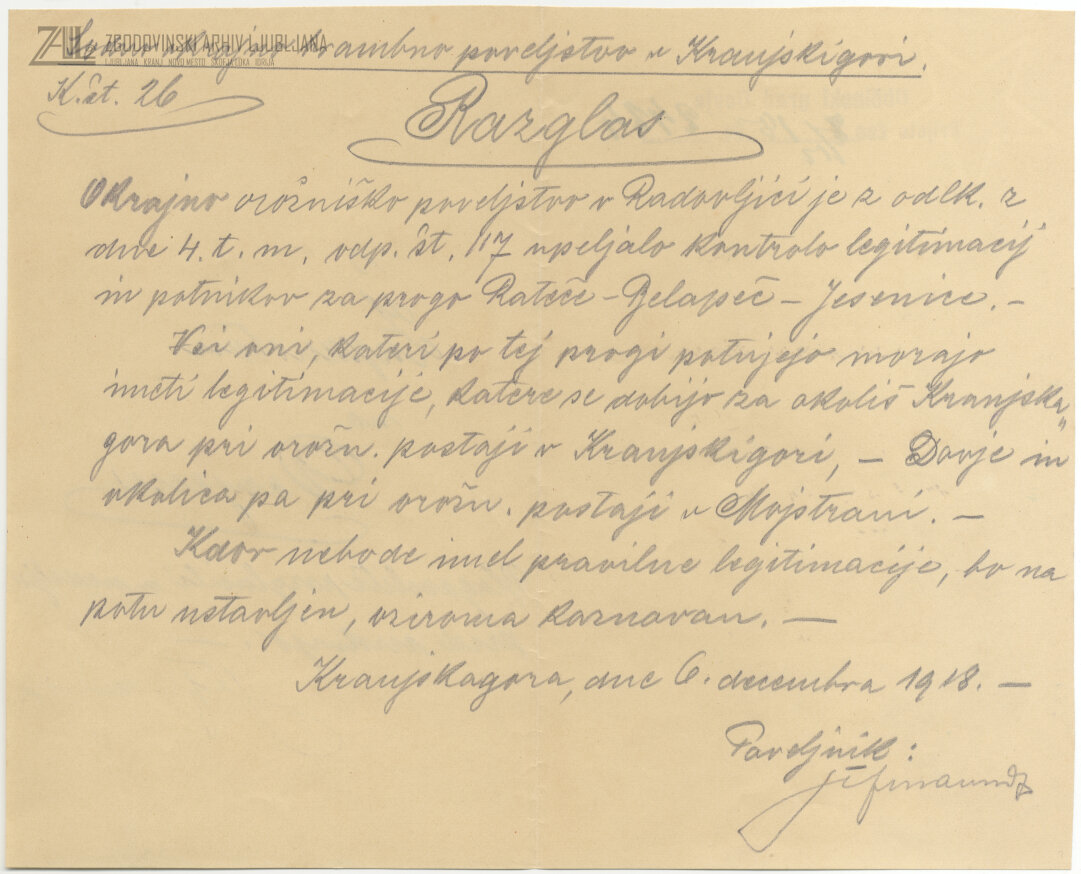 ZAL ZGODOVINSKI ARHIV LJUBLJANA
LJUBLJANA KRANJ NOVO MESTO ŠKOFJA LOKA IDRIJA
obrambno poveljstvo v Kranjskigori.
K.št. 26
Razglas
Okrajno orožniško poveljstvo v Radovljici je z odlk. z
dne 4. t. m. odp. št. 117 vpeljalo kontrolo legitimacij
in potnikov za progo Rateče - Belapeč - Jesenice. -
Vsi oni, kateri po tej progi potujejo morajo
imeti legitimacije, katere se dobijo za okoliš Kranjska
gora pri orožn. postaji v Kranjskigori, - Dovje in
okolica pa pri orožn. postaji v Mojstrani. -
Kdor nebode imel pravilne legitimacije, bo na
potu ustavljen, oziroma kaznovan. -
Kranjskagora, dne 6. decembra 1918. -
Poveljnik: